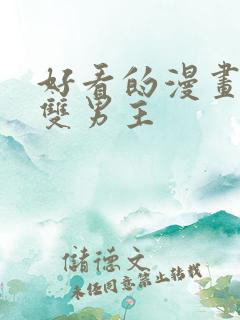 好看的漫畫
雙男主
儲德文
未经同意禁止转载